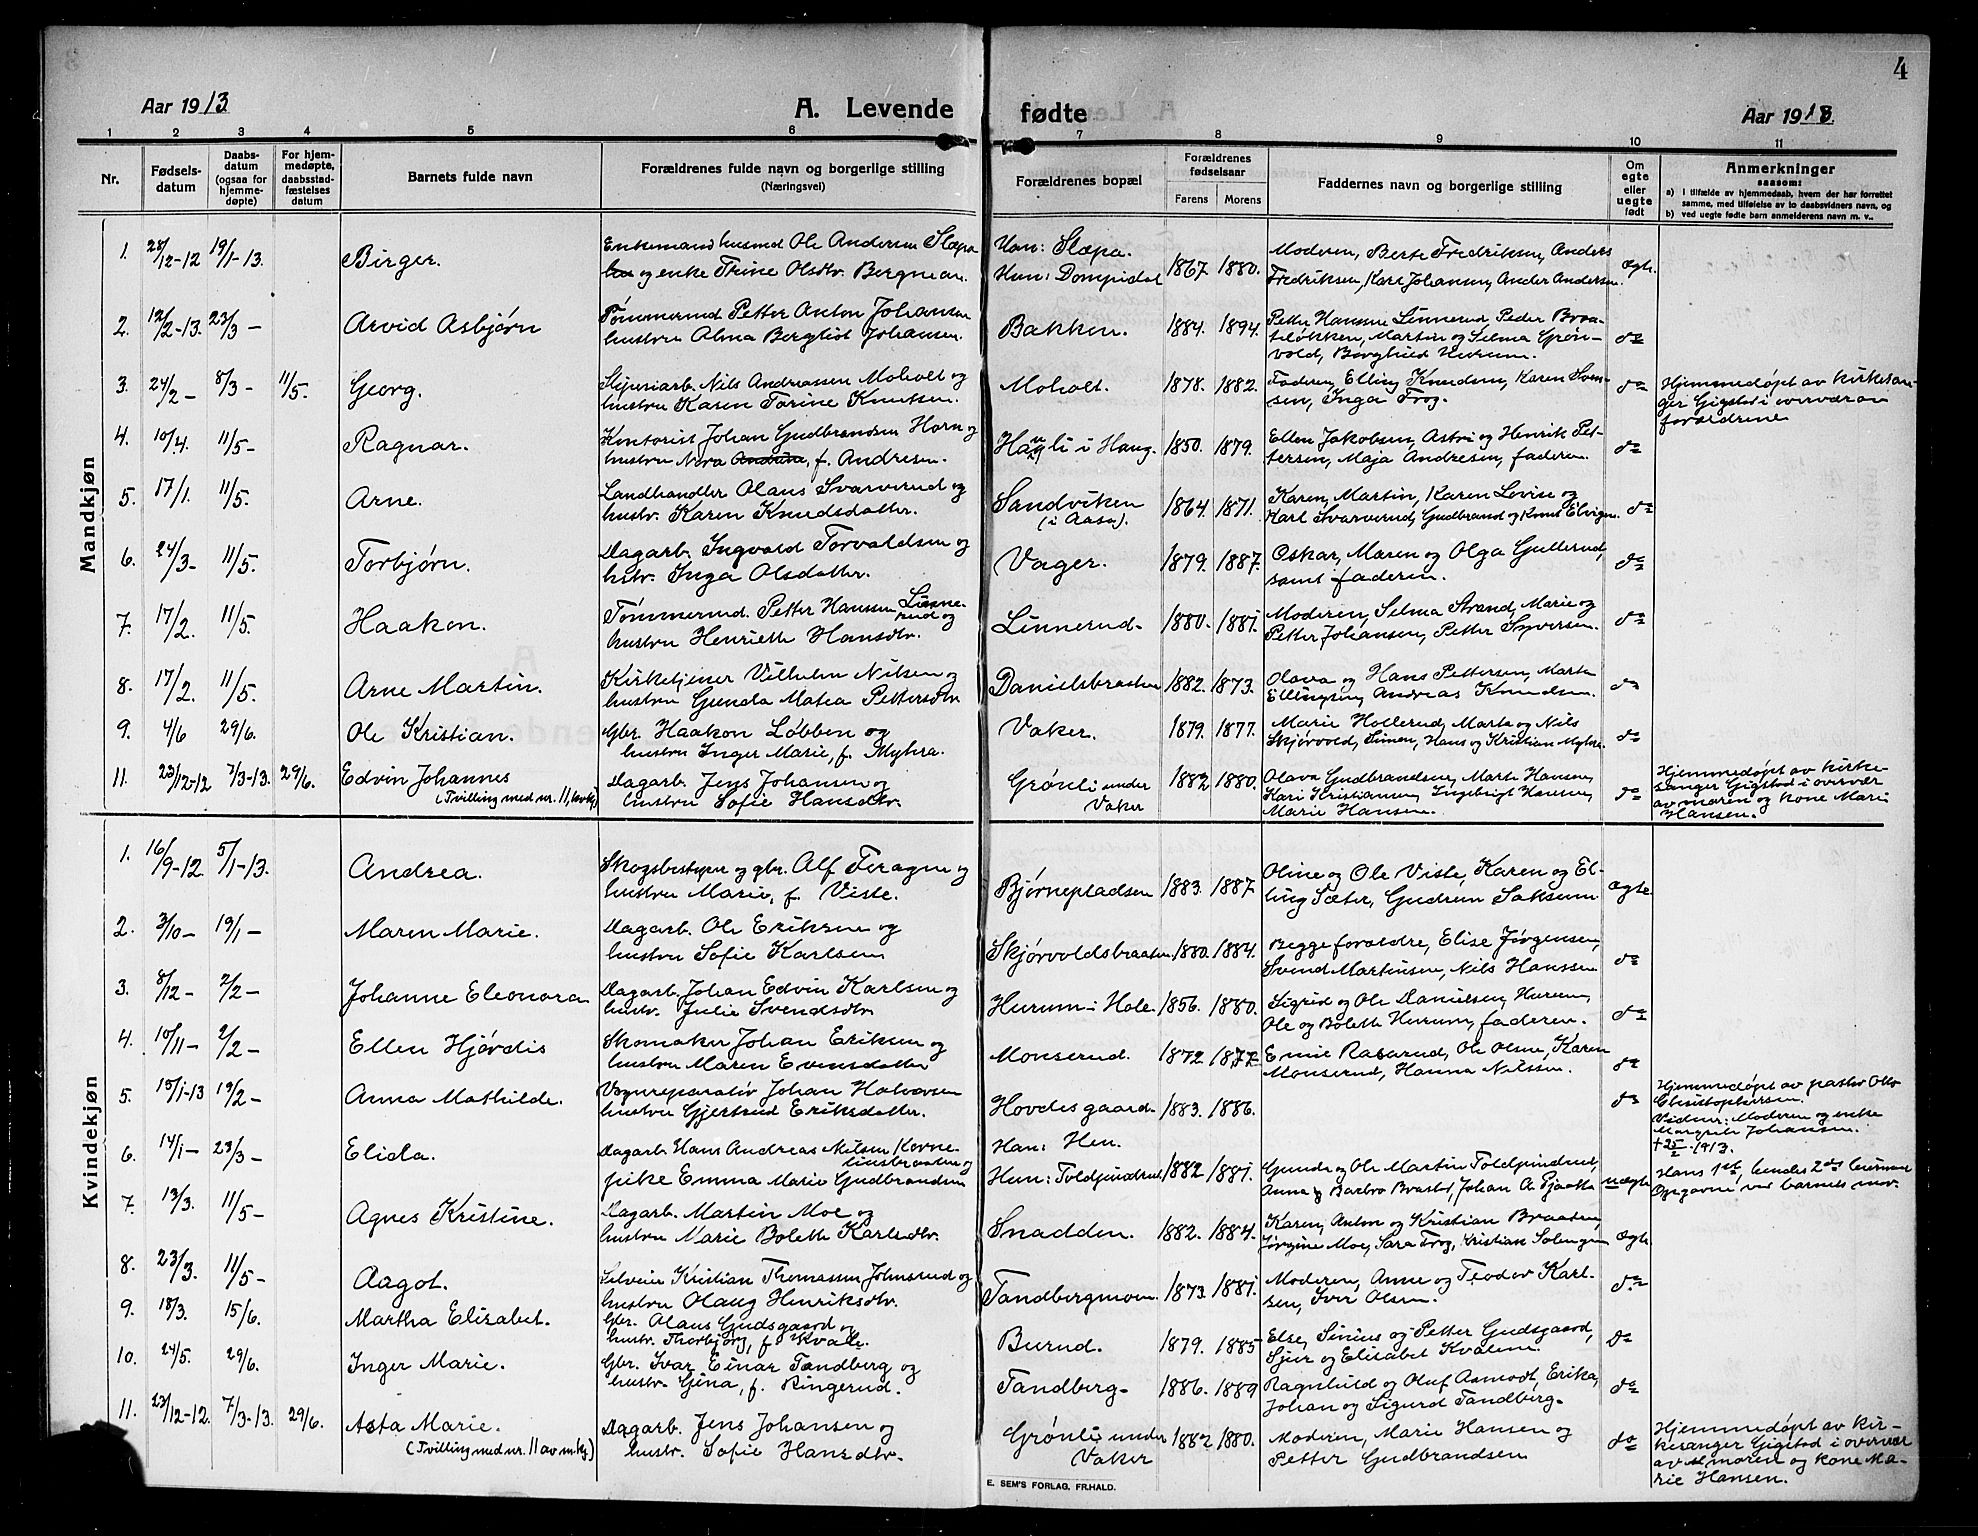 4
Aar 1913
A. Levende
fødte
Aar 1913.
1 2 3 4 5 6 7 8 9 10 11
Nr.
Fødsels-
datum
Daabs-
datum
(ogsaa for
hjemme-
døpte)
For hjem-
medøpte,
daabsstad-
fæstelses
datum
Barnets fulde navn
Forældrenes fulde navn og borgerlige stilling
(Næringsvei)
Forældrenes bopæl
Forældrenes
fødselsaar
Farens Morens
Faddernes navn og borgerlige stilling
Om
egte
eller
uegte
født
Anmerkninger
saasom:
a) i tilfælde av hjemmedaab, hvem der har forrettet
samme, med tilføielse av to daabsvidners navn, og
b) ved uegte fødte barn anmelderens navn m. v..
Mandkjøn
1. 28/12-12 19/1-13. Birger.
Enkemand husmd Ole Andersen Slæpa
og enke Trine Olsdtr. Bergnean.
Han: Slæpa.
Hun: Dompidal 1867 1880.
Moderen, Berte Fredriksen, Anders
Fredriksen, Kari Johansen, Ander Andersen. ægte.
2. 12/2-13. 23/3- Arvid Asbjørn
Tømmermd Petter Anton Johansen
hustru Alma Bergliot Johansen.
Bakken. 1884. 1894.
Petter Hanssen Linnerud, Peder Braa-
teløkken, Martin og Selma Grøn-
vold, Borghild Hurum. do
3. 24/2- 8/3- 11/5. Georg.
Sliperiarb. Nils Andreassen Moholt og
hustru Karen Torine Knutsen.
Moholt. 1878. 1882.
Faderen, Elling Knudsen, Karen Sven-
sen, Inga Trog. do
Hjemmedøpt av kirkesan-
ger Gigstad i overvær av
forældrene
4. 10/4. 11/5- Ragnar.
Kontorist Johan Gudbrandsen Horn og
hustru Nora Andrine, f. Andresen.
Haugli i Haug. 1850. 1879.
Ellen Jakobsen, Astri og Henrik Pet-
tersen, Maja Andresen, faderen. do
5. 17/1. 11/5. Arne.
Landhandler Olaus Svarverud og
hustr. Karen Knudsdatter.
Sandviken
(i Aasa). 1864. 1871.
Karen, Martin, Karen Lovise og
Karl Svarverud, Gudbrand og Knut Elvigen. do
6. 24/3- 11/5. Torbjørn.
Dagarb. Ingvald Torvaldsen og
hstr. Inga Olsdatter.
Vager. 1879. 1887.
Oskar, Maren og Olga Gullerud,
samt faderen. do
7. 17/2. 11/5. Haakon.
Tømmermd. Petter Hansen Linne-
rud og
hustru Henriette Hansdtr.
Linnerud- 1880. 1881.
Moderen, Selma Strand, Marie og
Petter Johansen, Petter Syversen. do
8. 17/2. 11/5. Arne Martin.
Kirketjener Vilhelm Nilsen og
hustru Gunda Matea Pettersdtr
Danielsbraaten 1882. 1873.
Olava og Hans Pettersen, Marte
Ellingsen, Andreas Knudsen. do
9. 4/6 29/6. Ole Kristian.
Gbr. Haakon Løbben og
hustru Inger Marie, f. Myhra.
Vaker. 1879. 1877.
Marie Hollerud, Marte og Nils
Skjørvold, Simen, Hans og Kristian Myhre. do
11. 23/12-12 7/3-13. 29/6. Edvin Johannes
(Tvilling med nr. 11, kvkj)
Dagarb. Jens Johansen og
hustru Sofie Hansdtr.
Grønli under
Vaker 1882 1880.
Olava Gudbrandsen, Marte Hansen,
Kari Kristiansen, Ingebrigt Hansen,
Marie Hansen. do
Hjemmedøpt av kirke-
sanger Gigstad i overvær
av moren og kone Marie
Hansen.
Kvindekjøn
1. 16/9-12. 5/1-13. Andrea.
Skogsbestyrer og gbr. Alf Feragen og
hustru Marie, f. Viste.
Bjørnepladsen 1883. 1887.
Oline og Ole Viste, Karen og El-
ling Sæter, Gudrun Saksum ægte.
2. 3/10- 19/1- Maren Marie.
Dagarb. Ole Eriksen og
hustru Sofie Karlsen
Skjørvoldsbraaten 1880. 1884.
Begge forældre, Elise Jørgensen,
Svend Martinsen, Nils Hanssen do
3. 8/12- 2/2- Johanne Eleonora
Dagarb. Johan Edvin Karlsen og
hustr. Julie Svendsdtr.
Hurum i Hole. 1856. 1880.
Sigrid og Ole Danielsen, Hurum,
Ole og Bolette Hurum, faderen. do
4. 10/11- 2/2- Ellen Hjørdis
Skomaker Johan Eriksen og
hustru Maren Evensdatter
Monserud. 1872 1877
Emie Rasarud, Ole Olsen, Karen
Monserud, Hanna Nilssen. do
5. 15/1-13 19/2- Anna Mathilde.
Vognreparatør Johan Halvorsen
hustru Gjertrud Eriksdatter.
Hovdesgaard- 1883. 1886. do
Hjemmedøpt av pastor Otto
Christophersen.
Vidner: Moderen og enke
Margrete Johansen.
+ 25/2-1913.
6. 14/1- 23/3- Elida.
Dagarb. Hans Andreas Nilsen Korne-
liusbraaten og
pike Emma Marie Gudbrandsen
Han: Hen.
Hun: Toldpindrud 1882. 1881.
Gunda og Ole Martin Toldpindrud,
Anna og Barbro Braatet, Johan A. Tjaatta uægte
Hans 1ste, hendes 2det leiermaal
Opgavne ved barnets mor.
7. 13/3. 11/5- Agnes Kristine.
Dagarb. Martin Moe og
hustru Marie Bolette Karlsdtr.
Snadden. 1882. 1884.
Karen, Anton og Kristian Braaten,
Jørgine Moe, Sara Trog, Kristiane Solengen ægte
8. 23/3. 11/5- Aagot.
Selveier Kristian Thomassen Johnsrud og
hustru Olaug Henriksdtr.
Tandbergmoen. 1873. 1881.
Moderen, Anne og Teodor Karl-
sen, Iver Olsen. do
9. 18/3. 15/6. Martha Elisabet.
Gbr. Olaus Gudsgaard og
hustr. Thorbjørg, f. Kvale.
Burud. 1879. 1885
Else, Sinius og Petter Gudsgaard,
Sjur og Elisabet Kvalem. do
10. 24/5. 29/6. Inger Marie.
Gbr. Ivar Einar Tandberg og
hustr. Gina, f. Ringerud.
Tandberg- 1886. 1889
Ragnhild og Oluf Asmodt, Erika,
Johan og Sigurd Tandberg- do
11. 23/12-12. 7/3-13. 29/6. Asta Marie.
(Tvilling med nr. 11 av mkj)
Dagarb. Jens Johansen og
hustr. Sofie Hansdtr.
Grønli under
Vaker 1882 1880.
Moderen, Marie Hansen og
Petter Gudbrandsen do
Hjemmedøpt av kir-
kesanger Gigstad i overvær
av moren og kone Ma-
rie Hansen.
E. SEM'S FORLAG, FR.HALD.